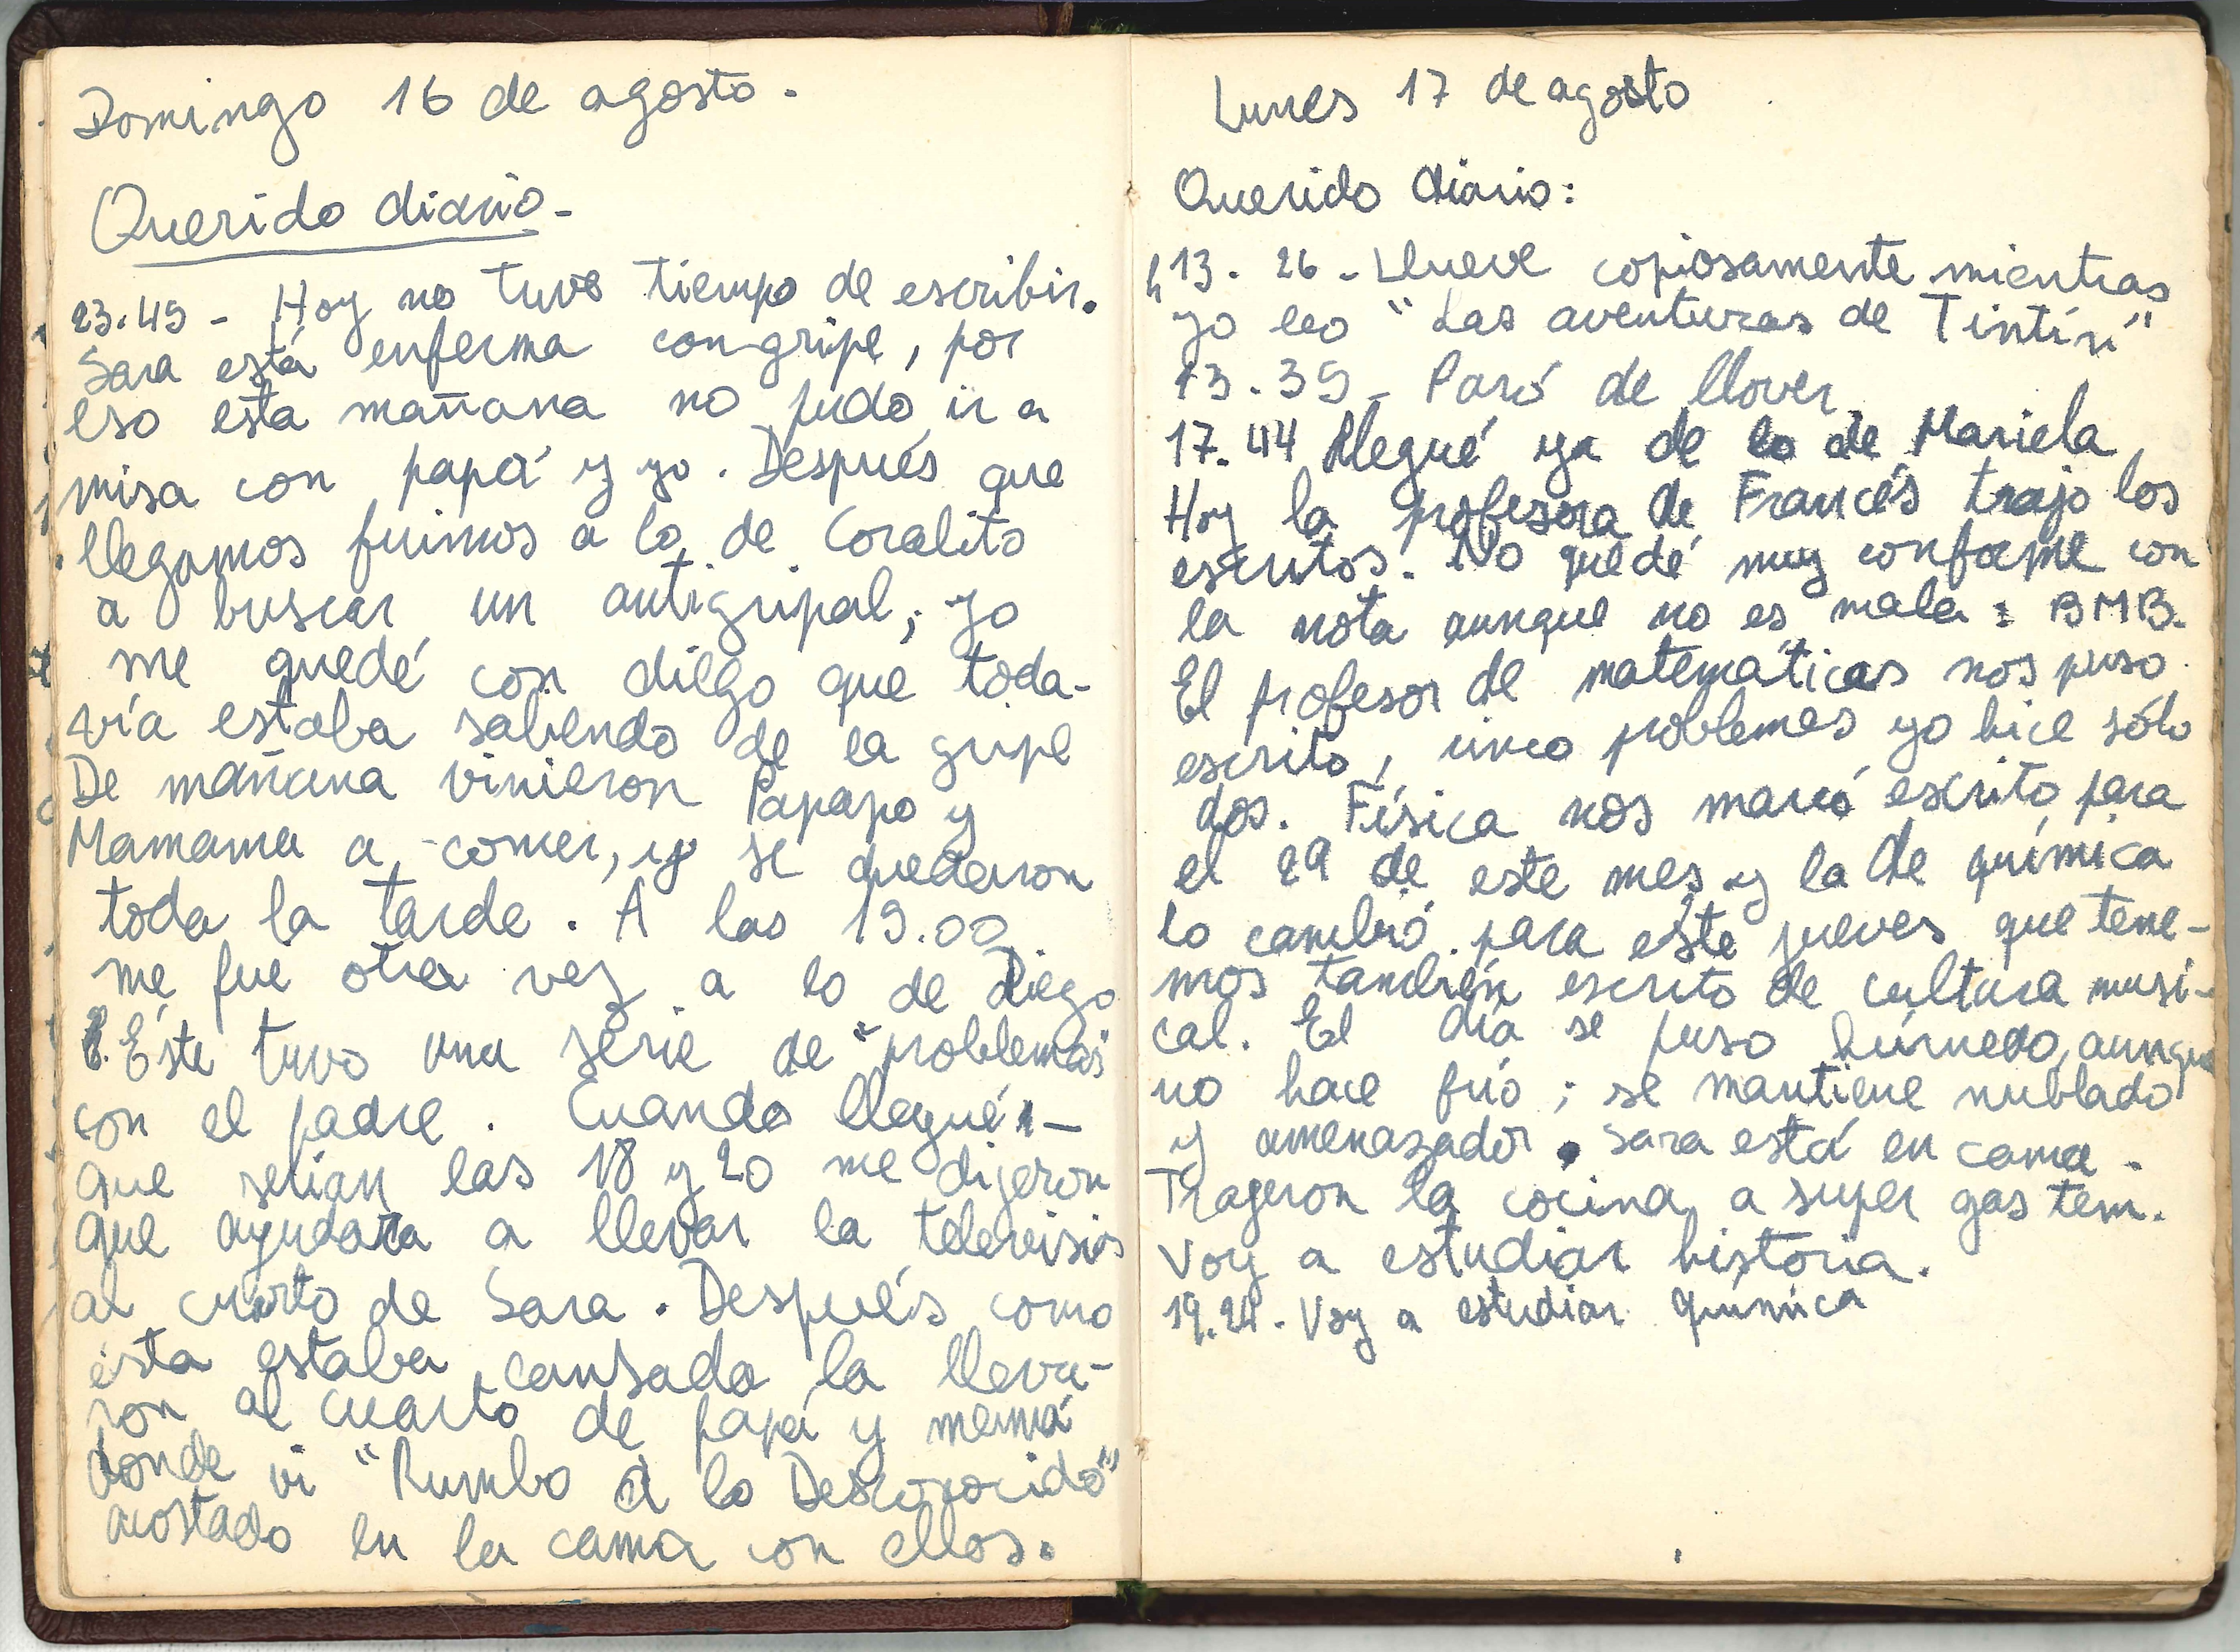 Domingo 16 de agosto.
Querido diario-
23.45 - Hoy no tuve tiempo de escribir.
Sara está enferma con gripe, por
eso esta mañana no pudo ir a
misa con papá y yo. Después que
llegamos fuimos a lo de Coralito
a buscar un antigripal, yo
me quedé con diego que toda-
vía estaba saliendo de la gripe
De mañana vinieron Papapo y
Mamama a comer, y se quedaron
toda la tarde. A las 19.00
me fui otra vez a lo de Diego
Éste tuvo una serie de "problemas"
con el padre. Cuando llegué -
que serían las 18 y 20 me dijeron
que ayudara a llevar la television
al cuarto de Sara. Después como
ésta estaba cansada la lleva-
ron al cuarto de papá y mamá
donde vi "Rumbo a lo Desconocido"
acostado en la cama con ellos.
Lunes 17 de agosto
Querido diario:
13. 26 - Llueve copiosamente mientras
yo leo "Las aventuras de Tintín"
13.35 - Paró de llover.
17.44 Llegué ya de lo de Mariela.
Hoy la profesora de Francés trajo los
escritos. No quedé muy conforme con
la nota aunque no es mala: BMB.
El profesor de matemáticas nos puso
escrito, cinco problemas yo hice sólo
dos. Física nos marcó escrito para
el 29 de este mes y la de química
lo cambió para este jueves que tene-
mos también escrito de cultura musi-
cal. El día se puso húmedo, aunque
no hace frío; se mantiene nublado
y amenazador. Sara está en cama.
Trageron la cocina a super gas tem.
Voy a estudiar historia.
19.24. Voy a estudiar química